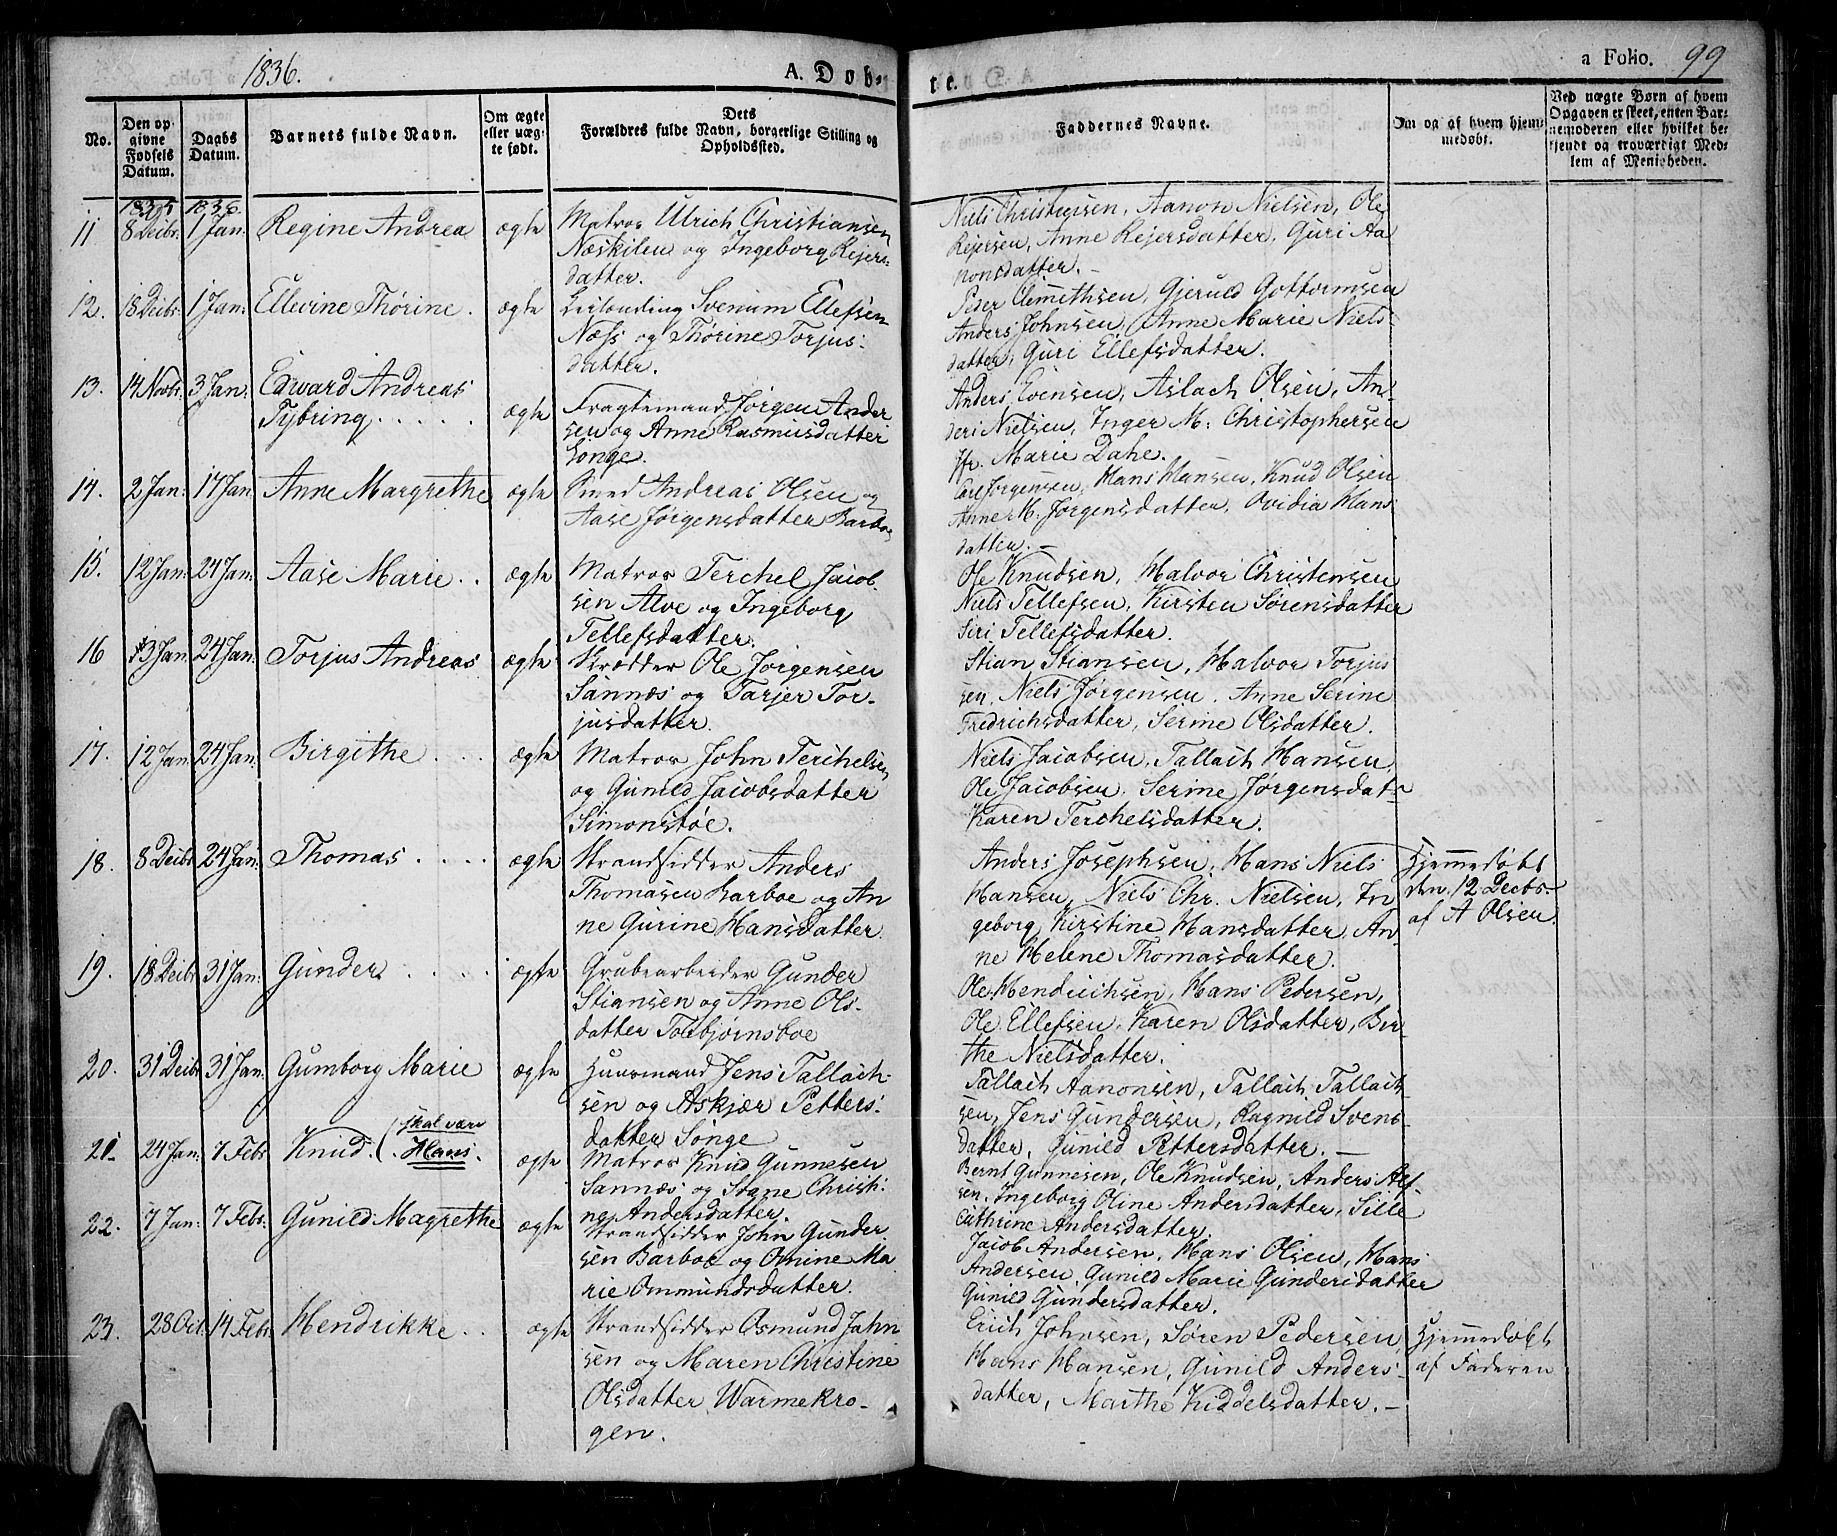 1836.
A. Døb-
te.
a Folio. 99
No.
Den op
givne
Fødsels
Datum.
Daabs
Datum.
Barnets fulde Navn.
Om ægte
eller uæg-
te født.
Dets
Forældres fulde Navn, borgerlige Stilling og
Opholdssted.
Faddernes Navne.
Om og af hvem hjem-
medøbt.
Ved uægte Børn af hvem
Opgaven er skeet, enten Bar-
nemoderen eller hvilket be-
kjendt og troværdigt Med-
lem af Menigheden.
1835 1836
11 8 Decbr. 1 Jan: Regine Andrea ægte
Matros Ulrich Christiansen
Næskilen og Ingeborg Rejers-
datter.
Niels Christensen, Aanon Nielsen, Ole
Rejersen, Anne Rejersdatter, Guri Aa
nonsdatter. -
12. 18 Decbr. 1 Jan: Ellevine Thorine. ægte
Svenum Ellefsen
Næss og Thorine Torjus-
datter.
Peder Clemethsen, Gjeruld Gottormsen
Anders Johnsen, Anne Marie Niels-
datter, Guri Ellefsdatter.
13. 14 Novbr. 3 Jan: Edward Andreas
Tybring . . . . . ægte
Fragtemand Jørgen Ander
sen og Anne Rasmusdatter
Songe.
Anders Evensen, Aslach Olsen, An-
ders Nielsen, Inger M: Christophersen
Jfr. Marie Dahe.
14. 2 Jan: 17 Jan: Anne Margrethe ægte
Smed Andreas Olsen og
Aase Jørgensdatter Barboe
Carl Jørgensen, Hans Hansen, Knud Olsen
Anne M. Jørgensdatter, Ovidia Hans
datter. -
15. 12 Jan: 24 Jan: Aase Marie . . ægte
Matros Terchel Jacob
sen Alve og Ingeborg
Tellefsdatter.
Ole Knudsen, Halvor Christensen
Niels Tellefsen, Kirsten Sørensdatter
Siri Tellefsdatter.
16 13 Jan: 24 Jan: Torjus Andreas ægte
Skrædder Ole Jørgensen
Sannæs og Tarjer Tor-
jusdatter.
Stian Stiansen, Halvor Torjus
sen, Niels Jørgensen. Anne Serine
Fredrichsdatter, Serine Olsdatter.
17. 12 Jan: 24 Jan: Birgithe . . . . ægte
Matros John Terchelsen
og Gunild Jacobsdatter
Simonstøe.
Niels Jacobsen, Tallach Hansen,
Ole Jacobsen. Serine Jørgensdat-
Karen Terchelsdatter.
18. 8 Decbr 24 Jan: Thomas . . . . ægte
Strandsidder Anders
Thomasen Barboe og An
ne Gurine Hansdatter.
Anders Josephsen, Hans Niels
Hansen, Niels Chr. Nielsen, In
geborg Kirstine Hansdatter, An
ne Helene Thomasdatter.
Hjemmedøbt
den 12 Decbr.
af A Olsen.
19. 18 Decbr 31 Jan: Gunder . . . . ægte
Grubearbeider Gunder
Stiansen og Anne Ols-
datter Torbjørnsboe
Ole Hendrichsen, Hans Pedersen,
Ole Ellefsen, Karen Olsdatter, Bir-
the Nielsdatter.
20. 31 Decbr 31 Jan: Gumborg Marie ægte
Huusmand Jens Tallach-
sen og Askjær Petters-
datter Songe
Tallach Aanonsen, Tallach Tallach-
sen, Jens Gundersen, Ragnild Svens-
datter, Gunild Pettersdatter. -
21. 24 Jan: 7 Febr. Knud. (skal være
Hans. ægte
Matros Knud Gunnesen
Sannæs og Stane Christi-
ne Andersdatter.
Bernt Gunnesen, Ole Knudsen, Anders Alf-
sen. Ingeborg Oline Andersdatter, Sille
Cathrine Andersdatter.
22. 7 Jan: 7 Febr. Gunild Magrethe ægte
Strandsidder John Gunder
sen Barboe og Omine Ma
rie Ommundsdatter.
Jacob Andersen, Hans Olsen, Hans
Andersen, Gunild Marie Gundersdatter
Gunild Gundersdatter.
23. 28 Oct. 14 Febr. Hendrikke . . ægte
Strandsidder Osmund Jahn
sen og Maren Christine
Olsdatter Warmekro-
gen.
Erich Johnsen, Søren Pedersen,
Hans Hansen, Gunild Anders-
datter, Marthe Kiddelsdatter. -
Hjemmedøbt
af Faderen